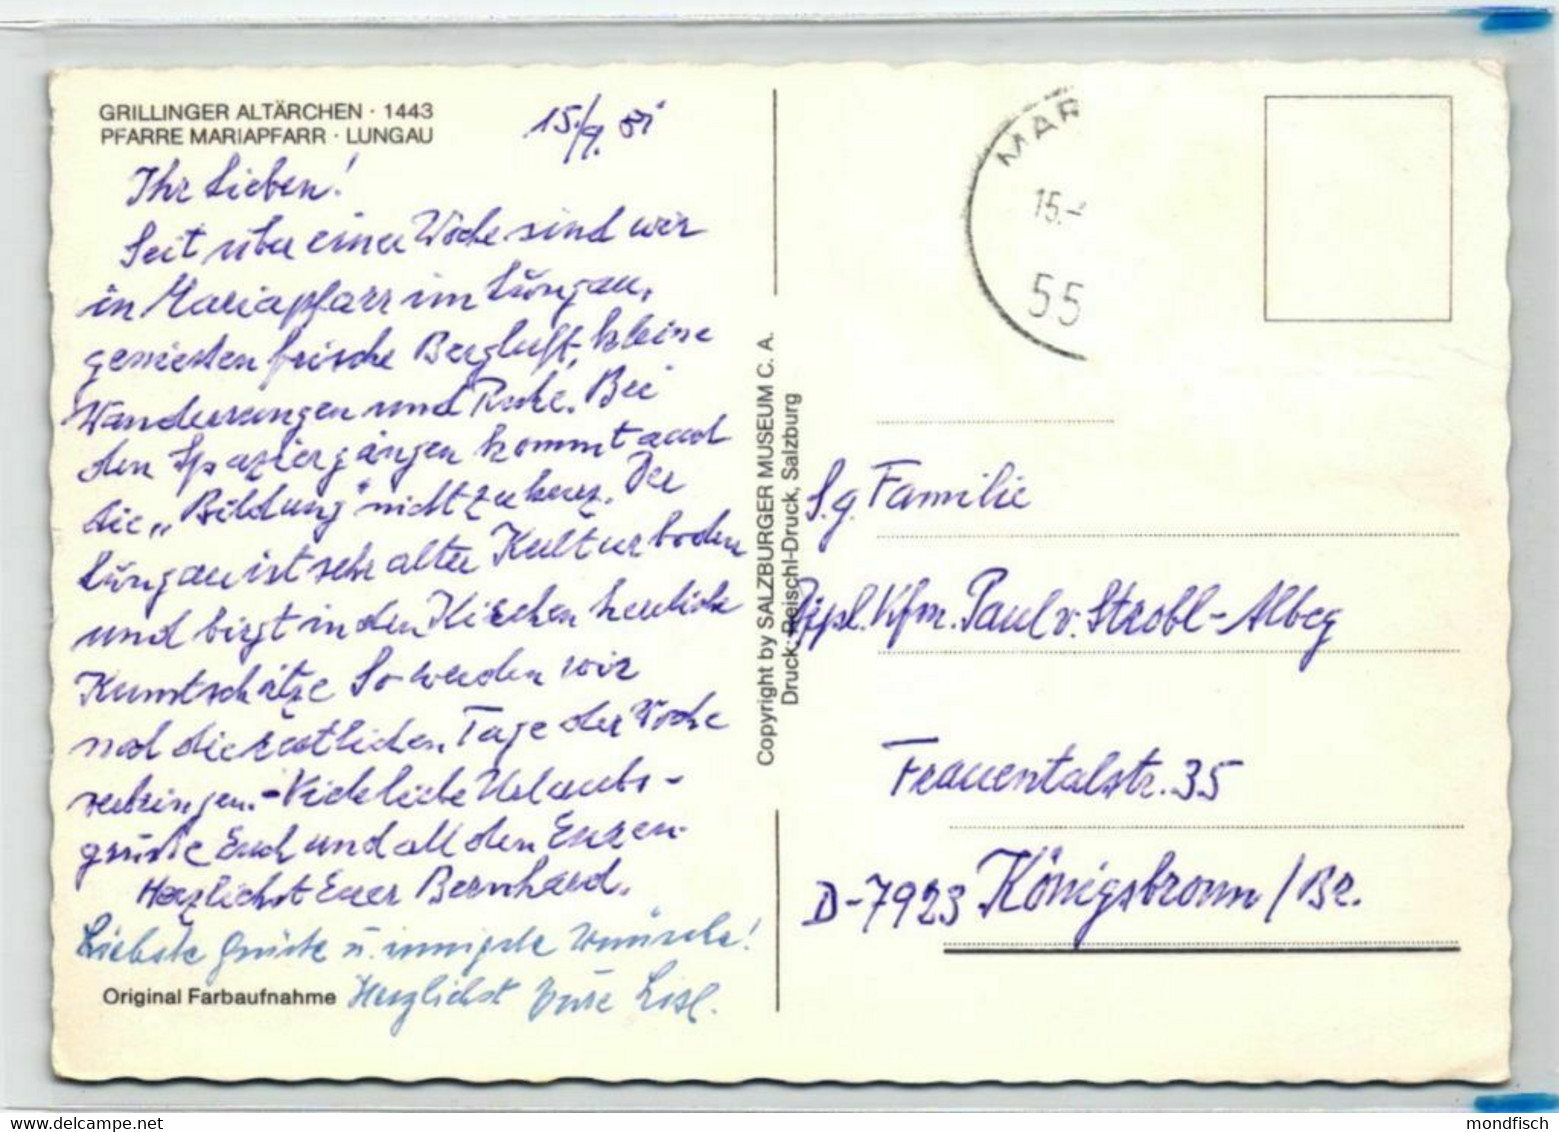 GRILLINGER ALTÄRCHEN · 1443
PFARRE MARIAPFARR · LUNGAU
15./9. 81
Ihr Lieben!
Seit über einer Woche sind wir
in Mariapfarr im Lungau,
genießen frische Bergluft, kleine
Wanderungen und Ruhe. Bei
den Spaziergängen kommt auch
die „Bildung" nicht zu kurz. Der
Lungau ist sehr alter Kulturboden
und birgt in den Kirchen herrliche
Kunstschätze So werden wir
noch die restlichen Tage der Woche
verbringen. - Viele liebe Urlaubs-
grüße Euch und all den Euren.
Herzlichst Euer Bernhard.
Liebste Grüße u. innigste Wünsche!
Original Farbaufnahme
Herzlichst Eure Lisl.
Copyright by SALZBURGER MUSEUM C. A.
Druck: Reischl-Druck, Salzburg
MAR
15.-
55
S.g. Familie
Dipl. Kfm. Paul v. Strobl-Albeg
Frauentalstr. 35
D-7923 Königsbronn/Br.
delcampe.net
mondfisch